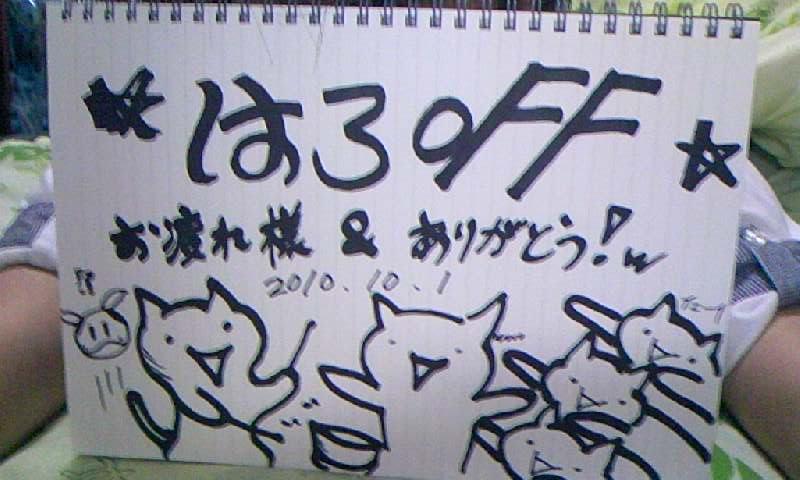 はろoFF
お疲れ様 & ありがとう!w
2010.10.1